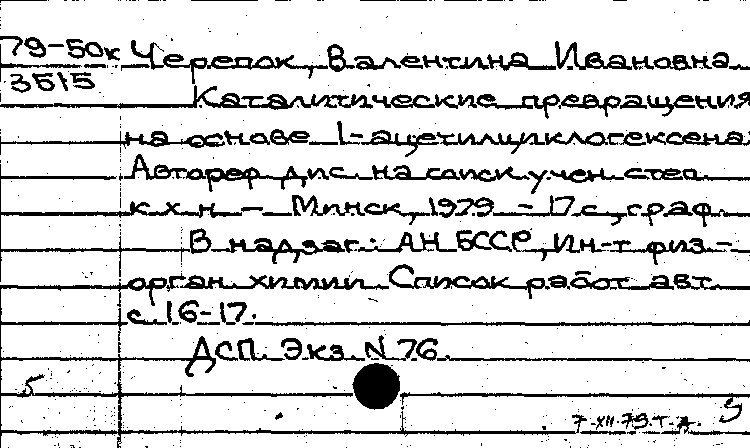 79-50к Черепок, Валентина Ивановна
3515
Каталитические превращения
на основе 1-ацетилциклогексена:
Автореф. дис. на соиск. учен. степ.
к.х.н. - Минск, 1979. - 17 с., граф.
В надзаг.: АН БССР, Ин-т физ.-
орган. химии. Список работ авт.
с. 16-17.
ДСП. Экз. N 76.
5
7-XII-79.Т-А.